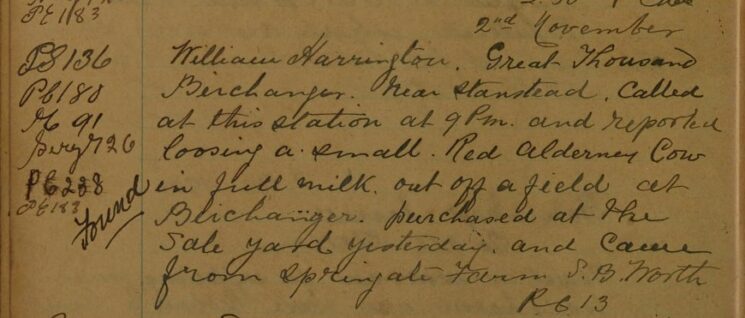 PC 183
2nd November
PS 136 William Harrington. Great Thousand
PC 180 Birchanger. Near Stanstead. Called
91 at this station at 9 Pm. and reported
Sergt 26 loosing a small. Red Alderney Cow
PC 238 in full milk. out off a field at
PC 183 Found Birchanger. purchased at the
Sale yard yesterday. and Came
from Springate Farm S. B. Worth
PC 13